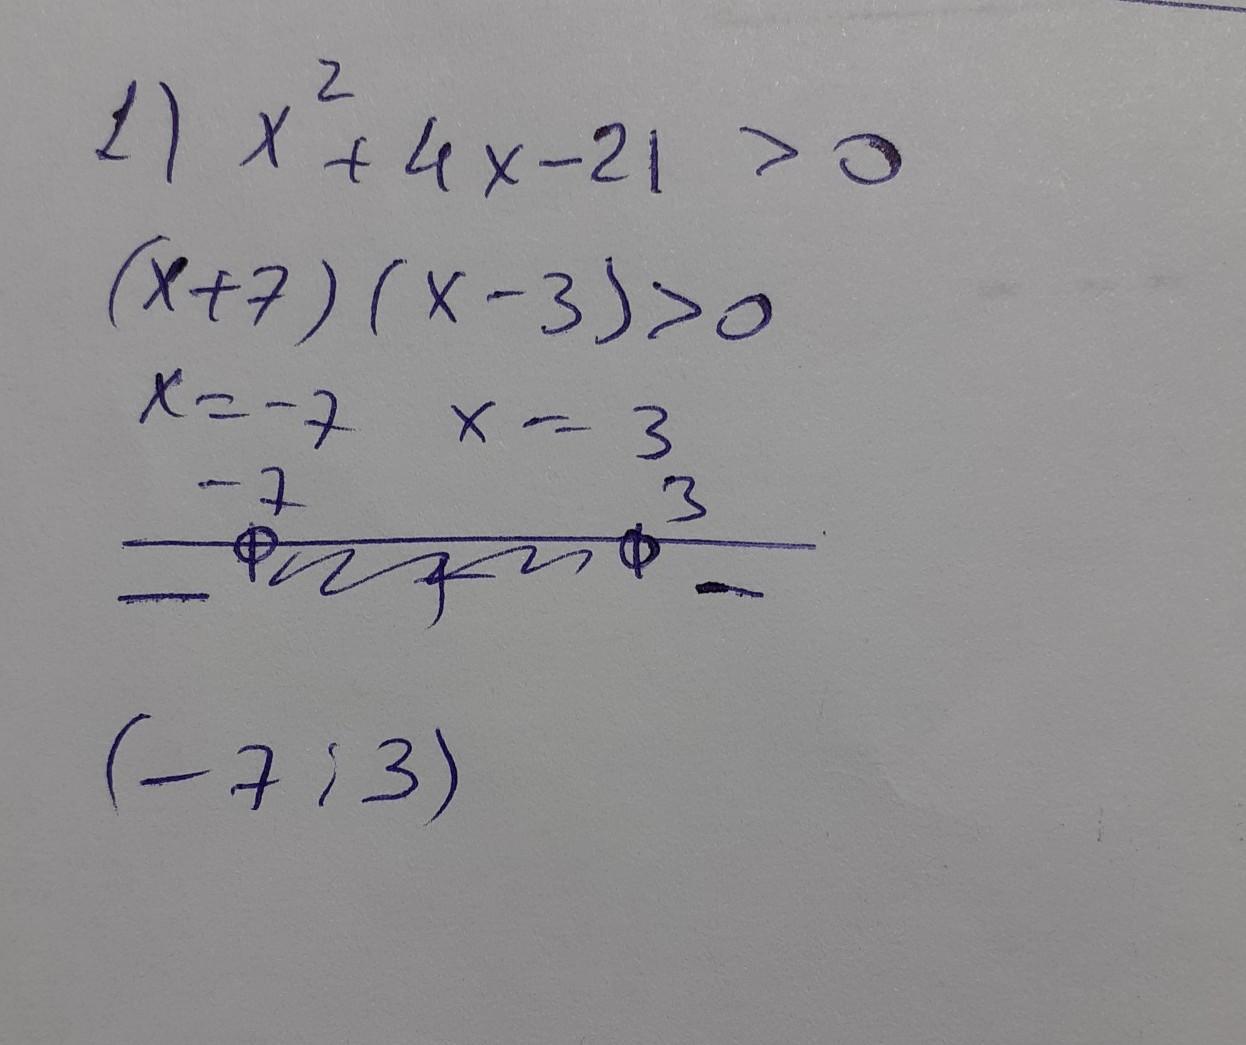 1) x² + 4x - 21 > 0
(x+7)(x-3)>0
x=-7 x=3
-7 3
- + -
(-7;3)